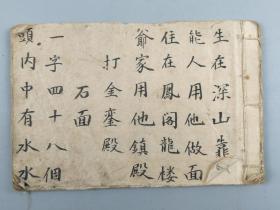 生在深山靠
能人用他做面
住在鳳阁龍楼
爺家用他鎮殿
打金鑾殿
石面
一字四十八個
頭内中有水水